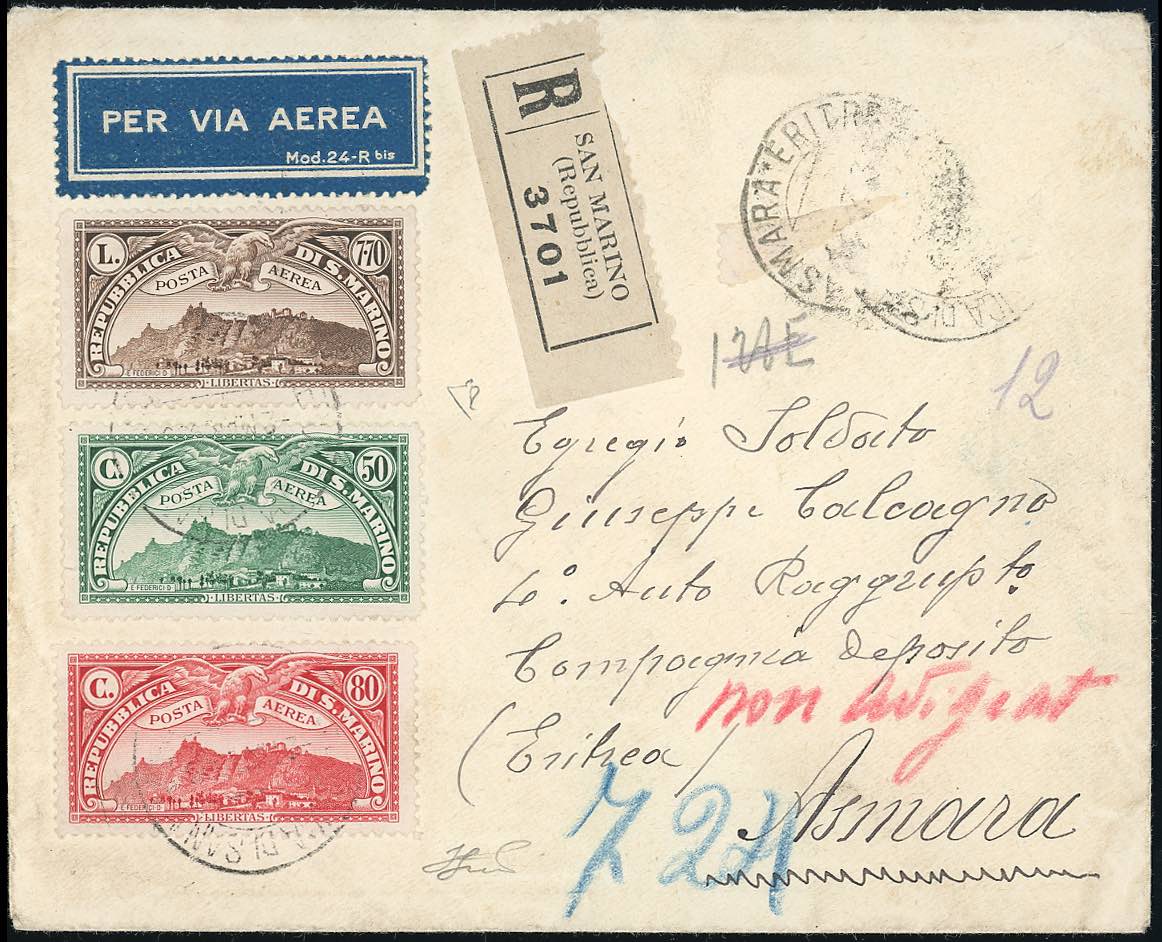 PER VIA AEREA
Mod.24-R bis
R
SAN MARINO
(Repubblica)
3701
ASMARA * ERITREA
L. 7.70
REPUBBLICA DI S. MARINO
POSTA AEREA
E FEDERICI D.
LIBERTAS
C. 50
REPUBBLICA DI S. MARINO
POSTA AEREA
E FEDERICI D.
LIBERTAS
C. 80
REPUBBLICA DI S. MARINO
POSTA AEREA
E FEDERICI D.
LIBERTAS
12
Egregio Soldato
Giuseppe Calcagno
4º. Auto Raggrupto
Compagnia deposito
non Adigrat
(Eritrea)
Asmara
724